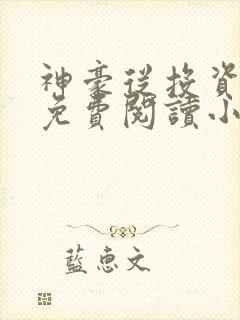 神豪從投資
免費閱讀小
藍惠文